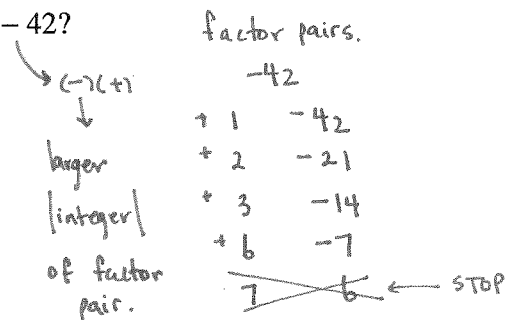 – 42?
(-)(+)
larger
|integer|
of factor
pair.
factor pairs.
-42
+ 1 -42
+ 2 -21
+ 3 -14
+ 6 -7
7 6 ← STOP